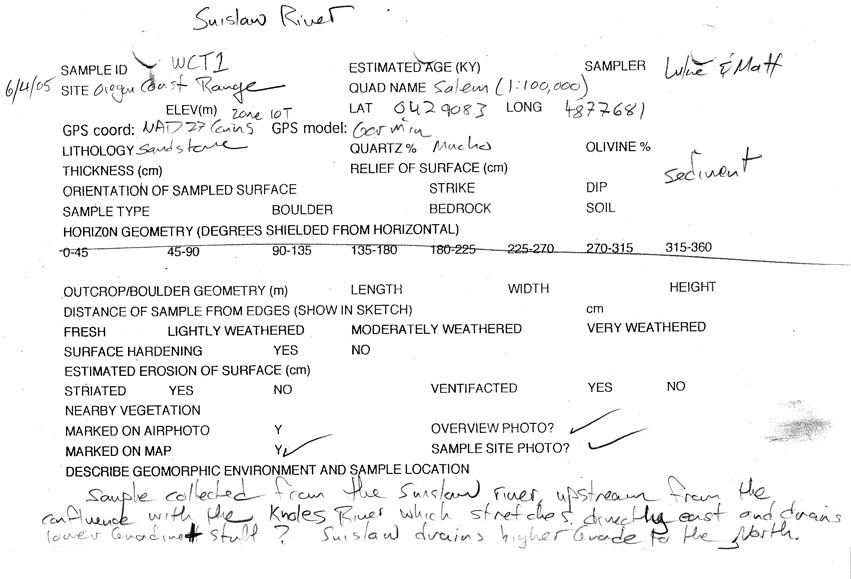 Suislaw River
SAMPLE ID WCT1 ESTIMATED AGE (KY) SAMPLER Luke & Matt
6/4/05 SITE Oregon Coast Range QUAD NAME Salem (1:100,000)
ELEV(m) zone 10T LAT 0429083 LONG 4877681
GPS coord: NAD27 Conus GPS model: Garmin
LITHOLOGY Sandstone QUARTZ % Mucho OLIVINE %
THICKNESS (cm) RELIEF OF SURFACE (cm) sediment
ORIENTATION OF SAMPLED SURFACE STRIKE DIP
SAMPLE TYPE BOULDER BEDROCK SOIL
HORIZ0N GEOMETRY (DEGREES SHIELDED FROM HORIZONTAL)
0-45 45-90 90-135 135-180 180-225 225-270 270-315 315-360
OUTCROP/BOULDER GEOMETRY (m) LENGTH WIDTH HEIGHT
DISTANCE OF SAMPLE FROM EDGES (SHOW IN SKETCH) cm
FRESH LIGHTLY WEATHERED MODERATELY WEATHERED VERY WEATHERED
SURFACE HARDENING YES NO
ESTIMATED EROSION OF SURFACE (cm)
STRIATED YES NO VENTIFACTED YES NO
NEARBY VEGETATION
MARKED ON AIRPHOTO Y OVERVIEW PHOTO? ✓
MARKED ON MAP Y ✓ SAMPLE SITE PHOTO? ✓
DESCRIBE GEOMORPHIC ENVIRONMENT AND SAMPLE LOCATION
Sample collected from the Suislaw river, upstream from the
confluence with the Knoles River which stretches directly east and drains
lower stuff? Suislaw drains higher Grade to the North.